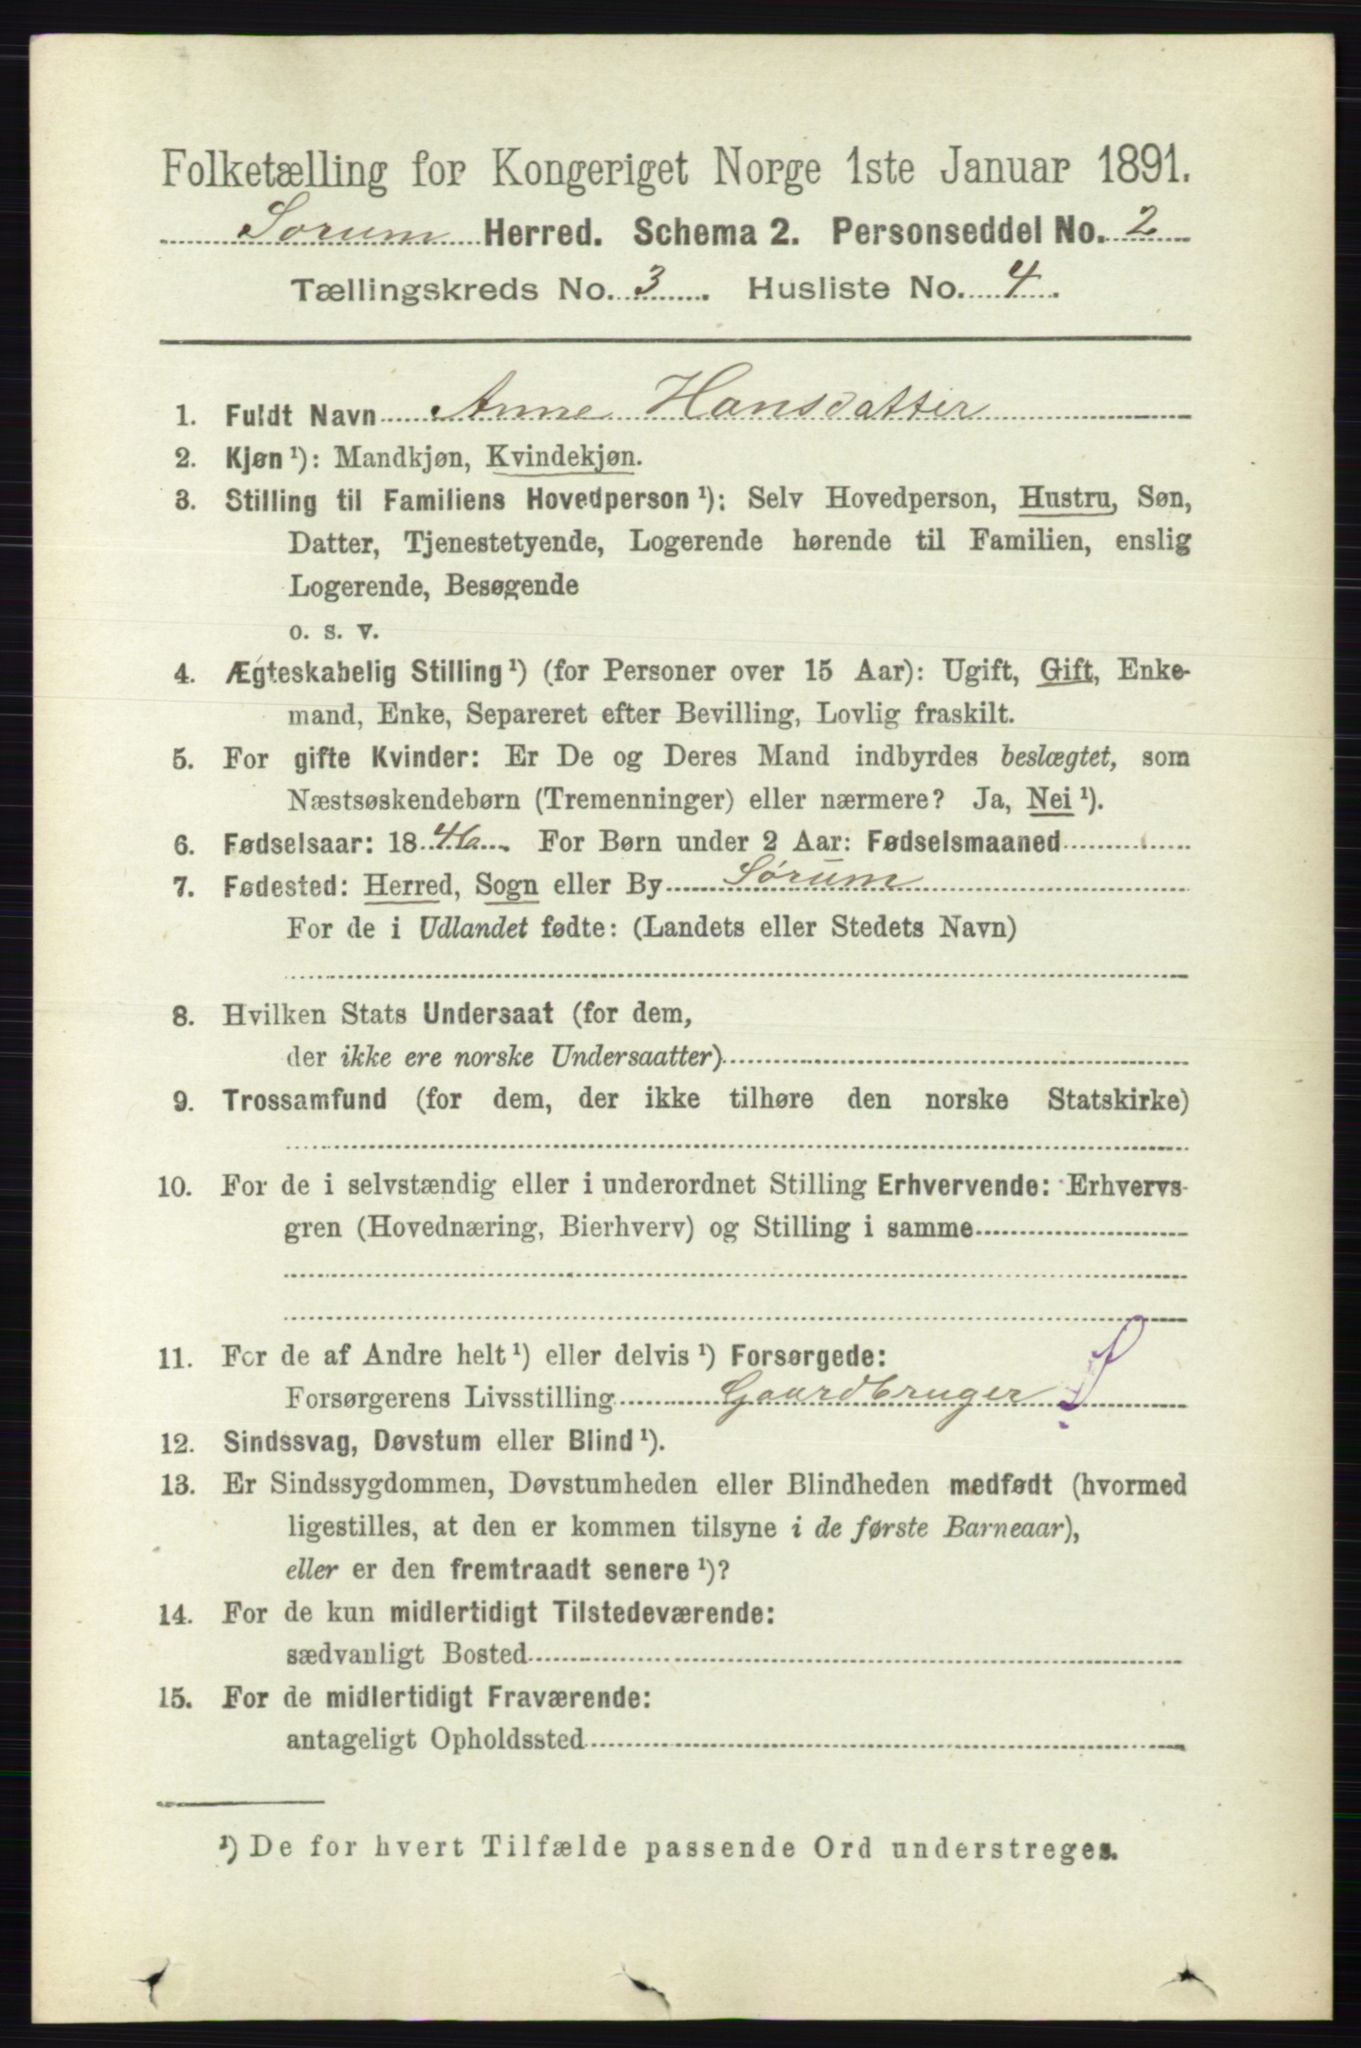 Folketælling for Kongeriget Norge 1ste Januar 1891.
Sørum Herred. Schema 2. Personseddel No. 2
Tællingskreds No. 3. Husliste No. 4.
1. Fuldt Navn Anne Hansdatter
2. Kjøn ¹): Mandkjøn, Kvindekjøn.
3. Stilling til Familiens Hovedperson ¹): Selv Hovedperson, Hustru, Søn,
Datter, Tjenestetyende, Logerende hørende til Familien, enslig
Logerende, Besøgende
o. s. v.
4. Ægteskabelig Stilling ¹) (for Personer over 15 Aar): Ugift, Gift, Enke-
mand, Enke, Separeret efter Bevilling, Lovlig fraskilt.
5. For gifte Kvinder: Er De og Deres Mand indbyrdes beslægtet, som
Næstsøskendebørn (Tremenninger) eller nærmere? Ja, Nei ¹).
6. Fødselsaar: 1846. For Børn under 2 Aar: Fødselsmaaned
7. Fødested: Herred, Sogn eller By Sørum
For de i Udlandet fødte: (Landets eller Stedets Navn)
8. Hvilken Stats Undersaat (for dem,
der ikke ere norske Undersaatter)
9. Trossamfund (for dem, der ikke tilhøre den norske Statskirke)
10. For de i selvstændig eller i underordnet Stilling Erhvervende: Erhvervs-
gren (Hovednæring, Bierhverv) og Stilling i samme
11. For de af Andre helt ¹) eller delvis ¹) Forsørgede:
Forsørgerens Livsstilling Gaardbruger S
12. Sindssvag, Døvstum eller Blind ¹).
13. Er Sindssygdommen, Døvstumheden eller Blindheden medfødt (hvormed
ligestilles, at den er kommen tilsyne i de første Barneaar),
eller er den fremtraadt senere ¹)?
14. For de kun midlertidigt Tilstedeværende:
sædvanligt Bosted
15. For de midlertidigt Fraværende:
antageligt Opholdssted
¹) De for hvert Tilfælde passende Ord understreges.